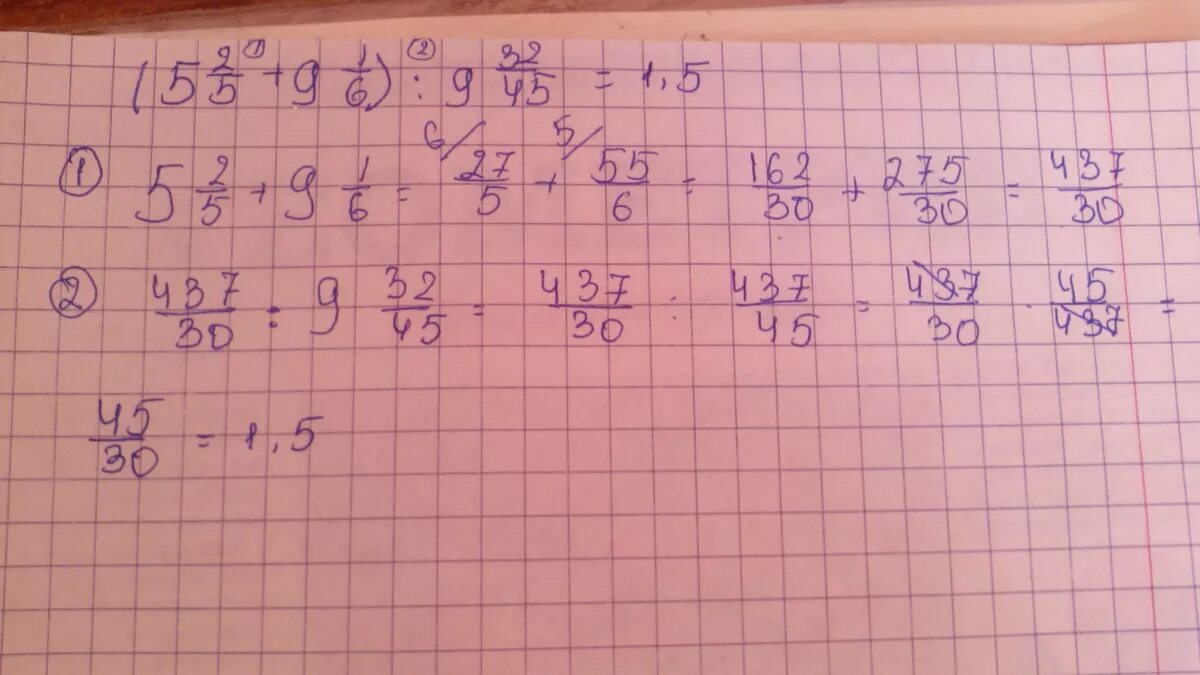 (5 2/5 ① + 9 1/6) ② : 9 32/45 = 1,5
① 5 2/5 + 9 1/6 = 6/ 27/5 + 5/ 55/6 = 162/30 + 275/30 = 437/30
② 437/30 : 9 32/45 = 437/30 : 437/45 = 437/30 · 45/437 =
45/30 = 1,5